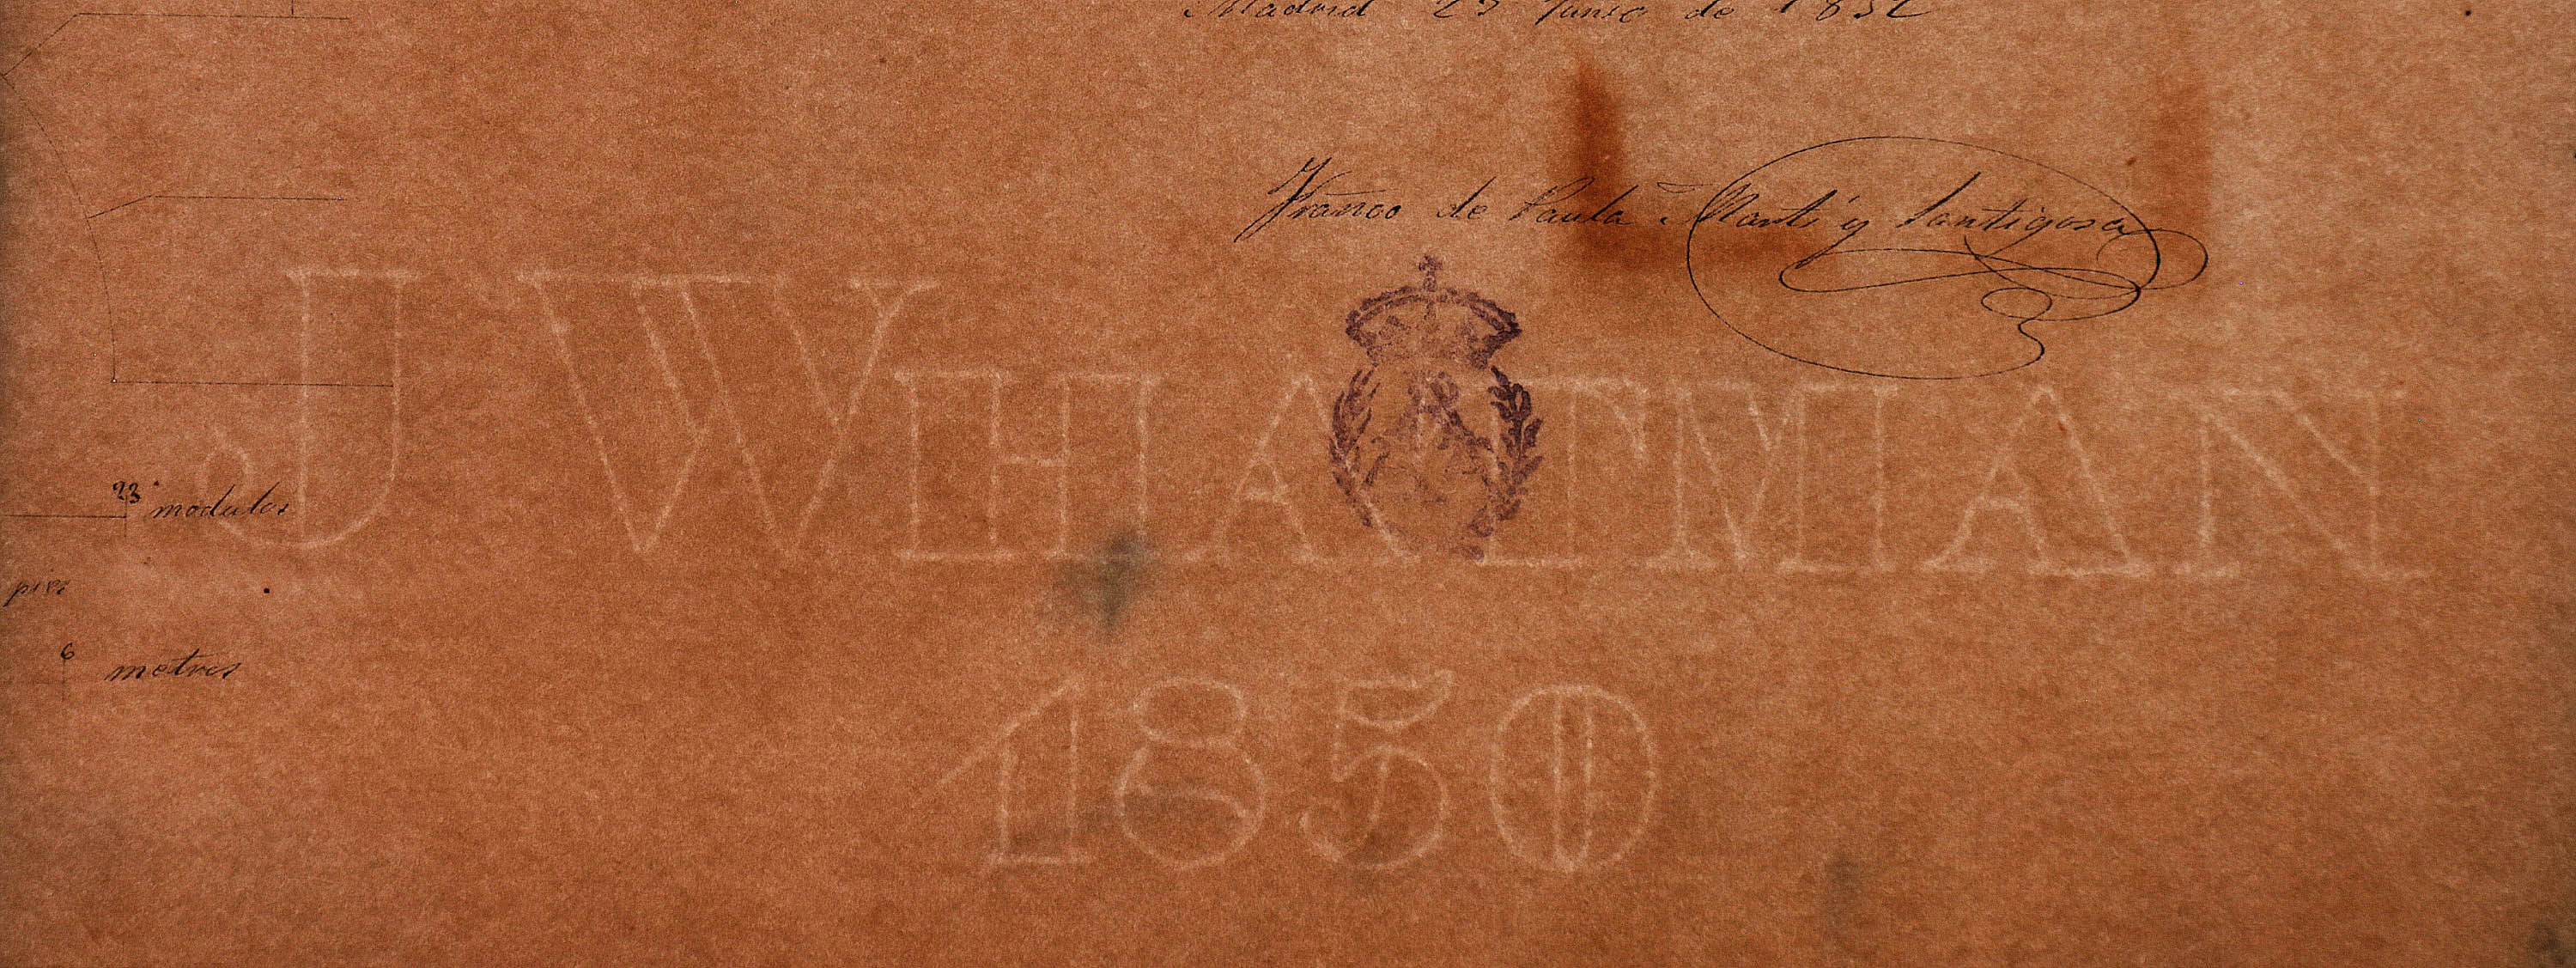 Madrid 23 Junio de 1852
Franco de Paula Martí y Santigosa
J WHATMAN
23 modulos
pies
6 metros
1850